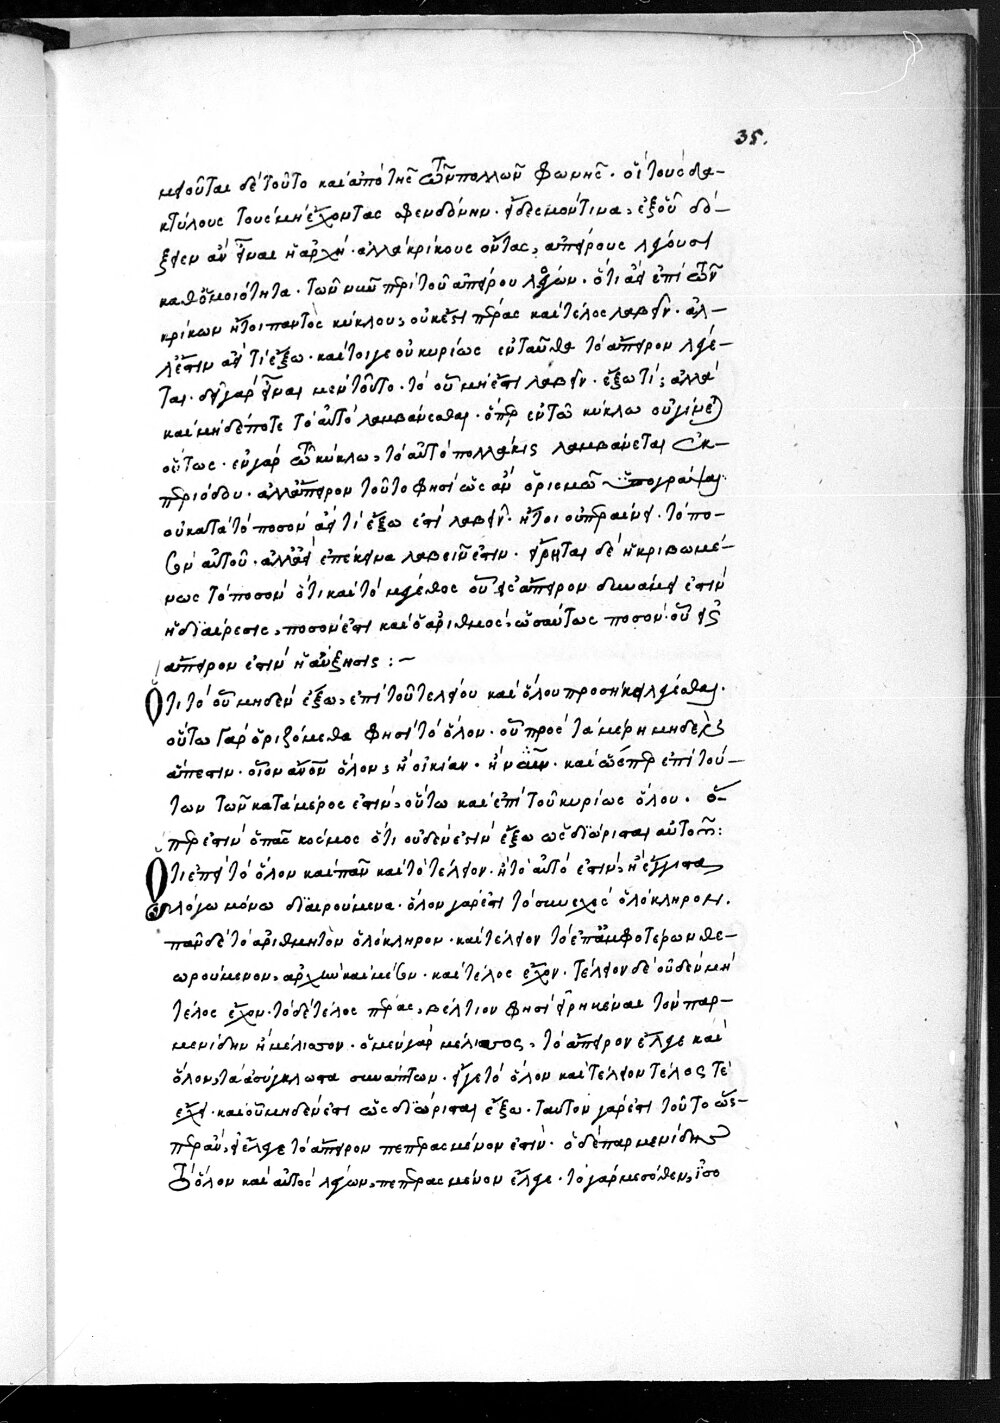 35.
μειοῦται δὲ τοῦτο καὶ ἀπὸ τῆς τῶν πολλῶν φωνῆς. οἳ τοὺς δα-
κτύλους τοὺς μὴ ἔχοντας σφενδόνην. ἐξ οὗ δό-
ξειεν ἂν εἶναι ἡ ἀρχή. ἀλλὰ κρίκους ὄντας, ἀπείρους λέγουσι
καθ' ὁμοιότητα. τῶν περὶ τοῦ ἀπείρου λόγων. ὅτι ἀεὶ ἐπὶ τῶν
κρίκων ἤτοι παντὸς κύκλου, οὐκ ἔστι πέρας καὶ τέλος λαβεῖν. ἀλ-
λ' ἔστιν ἀεί τι ἔξω. καίτοιγε οὐ κυρίως ἐνταῦθα τὸ ἄπειρον λέγε-
ται. δεῖ γὰρ εἶναι μὲν τοῦτο. τὸ οὗ μή ἐστι λαβεῖν. ἔξω τί; ἀλλὰ
καὶ μηδέποτε τὸ αὐτὸ λαμβάνεσθαι. ὅπερ ἐν τῷ κύκλω οὐ γίνεται
οὕτως. ἐν γὰρ τῷ κύκλω, τὸ αὐτὸ πολλάκις λαμβάνεται ἐκ
περιόδου. ἀλλ' ἄπειρον τοῦτο φησὶ ὡς ἂν ὁρισμῷ ὑπογράψαι
οὐ κατὰ τὸ ποσὸν ἀεί τι ἔξω ἐστὶ λαβεῖν. ἤτοι οὐ περαίνει. τὸ πο-
σὸν αὐτοῦ. ἀλλ' ἀεὶ ἐπέκεινα λαβεῖν ἐστιν. εἴρηται δὲ ἠκριβωμέ-
νως τὸ ποσόν ὅτι καὶ τὸ μέγεθος οὗ εἰς ἄπειρον δυνάμει ἐστὶν
ἡ διαίρεσις, ποσόν ἐστι καὶ ὁ ἀριθμός, ὡσαύτως ποσόν. οὗ εἰς
ἄπειρον ἐστὶν ἡ αὔξησις :~
Ὅτι τὸ οὗ μηδὲν ἔξω, ἐπὶ τοῦ τελείου καὶ ὅλου προσῆκε λέγεσθαι.
οὕτω γὰρ ὁριζόμεθα φησὶ τὸ ὅλον. οὗ πρὸς τὰ μέρη μηδὲν
ἄπεστιν. οἷον ἄνθρωπον ὅλον, ἢ οἰκίαν. ἢ ναῦν. καὶ ὥσπερ ἐπὶ τού-
των τῶν κατὰ μέρος ἐστίν, οὕτω καὶ ἐπὶ τοῦ κυρίως ὅλου. ὅ-
περ ἐστὶν ὁ πᾶς κόσμος ὅτι οὐδέν ἐστιν ἔξω ὡς διώρισται αὐτοῦ:
Ὅτι ἐπεὶ τὸ ὅλον καὶ πᾶν καὶ τὸ τέλειον. ἢ τὸ αὐτό ἐστιν, ἢ ἔγγιστα
λόγω μόνω διαιρούμενα. ὅλον γάρ ἐστι τὸ συνεχὲς ὁλόκληρον.
πᾶν δὲ τὸ ἀριθμητὸν ὁλόκληρον. καὶ τέλειον τὸ ἐπ' ἀμφοτέρων θε-
ωρούμενον, ἀρχὴν καὶ μέσον. καὶ τέλος ἔχον. τέλειον δὲ οὐδὲν μὴ
τέλος ἔχον. τὸ δὲ τέλος πέρας, βέλτιον φησὶ εἰρηκέναι τὸν παρ-
μενίδην ἢ μέλισσον. ὁ μὲν γὰρ μέλισσος, τὸ ἄπειρον ἔλεγε καὶ
ὅλον, τὰ ἀσύγκλωστα συνάπτων. εἴγε τὸ ὅλον καὶ τέλειον τέλος τε
ἔχει. καὶ οὗ μηδέν ἐστι ὡς διώρισται ἔξω. ταυτὸν γάρ ἐστι τοῦτο ὥσ-
περ ἂν, εἰ ἔλεγε τὸ ἄπειρον πεπερασμένον ἐστίν. ὁ δὲ παρμενίδης
τὸ ὅλον καὶ αὐτὸς λέγων, πεπερασμένον ἔλεγε. τὸ γὰρ μεσόθεν, ἶσο